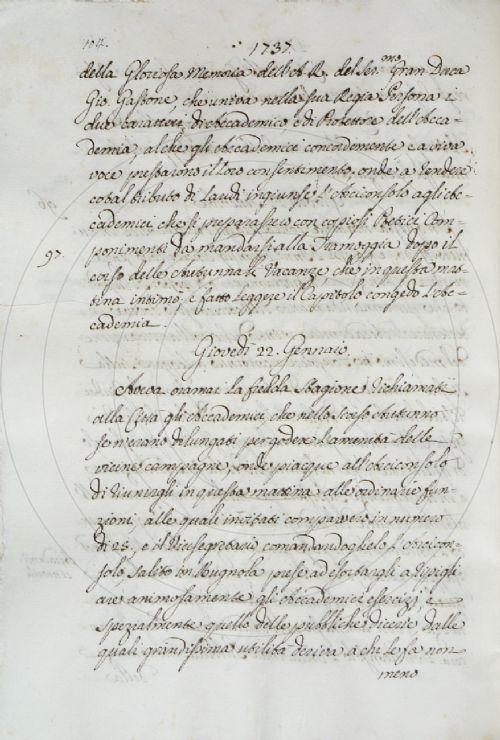 104.
1737.
della Gloriosa Memoria dell'A. R. del Ser.mo Gran Duca
Gio. Gastone, che univa nella sua Regia Persona i
due caratteri di Accademico e di Protettore dell'Acca-
demia, al che gli Accademici concordemente e a viva
voce prestarono il loro consentimento, onde a rendere
cotal tributo di Laudi ingiunse l'Arciconsolo agli Ac-
cademici che si preparassero con copiosi Poetici Com-
ponimenti da mandarsi alla Tramoggia dopo il
97.
corso delle Autunnali Vacanze che in questa mat-
tina intimò, e fatto leggere il Capitolo congedò l'Ac-
cademia.
Giovedì 22. Gennaio.
Aveva oramai la fredda Stagione richiamati
alla Città gli Accademici, che nello scorso Autunno
se n'erano dilungati per godere l'amenità delle
vicine campagne, onde piacque all'Arciconsolo
di riunirgli in questa mattina alle ordinarie fun-
zioni, alle quali invitati comparvero in numero
di 25. e il Vicesegretario comandandoglielo l'Arcicon-
solo, salito in Bugnola prese ad esortargli a ripigli-
are animosamente gli Accademici esercizj e
spezialmente quello delle pubbliche dicerie dalle
quali grandissima utilità deriva a chi le fa non
meno